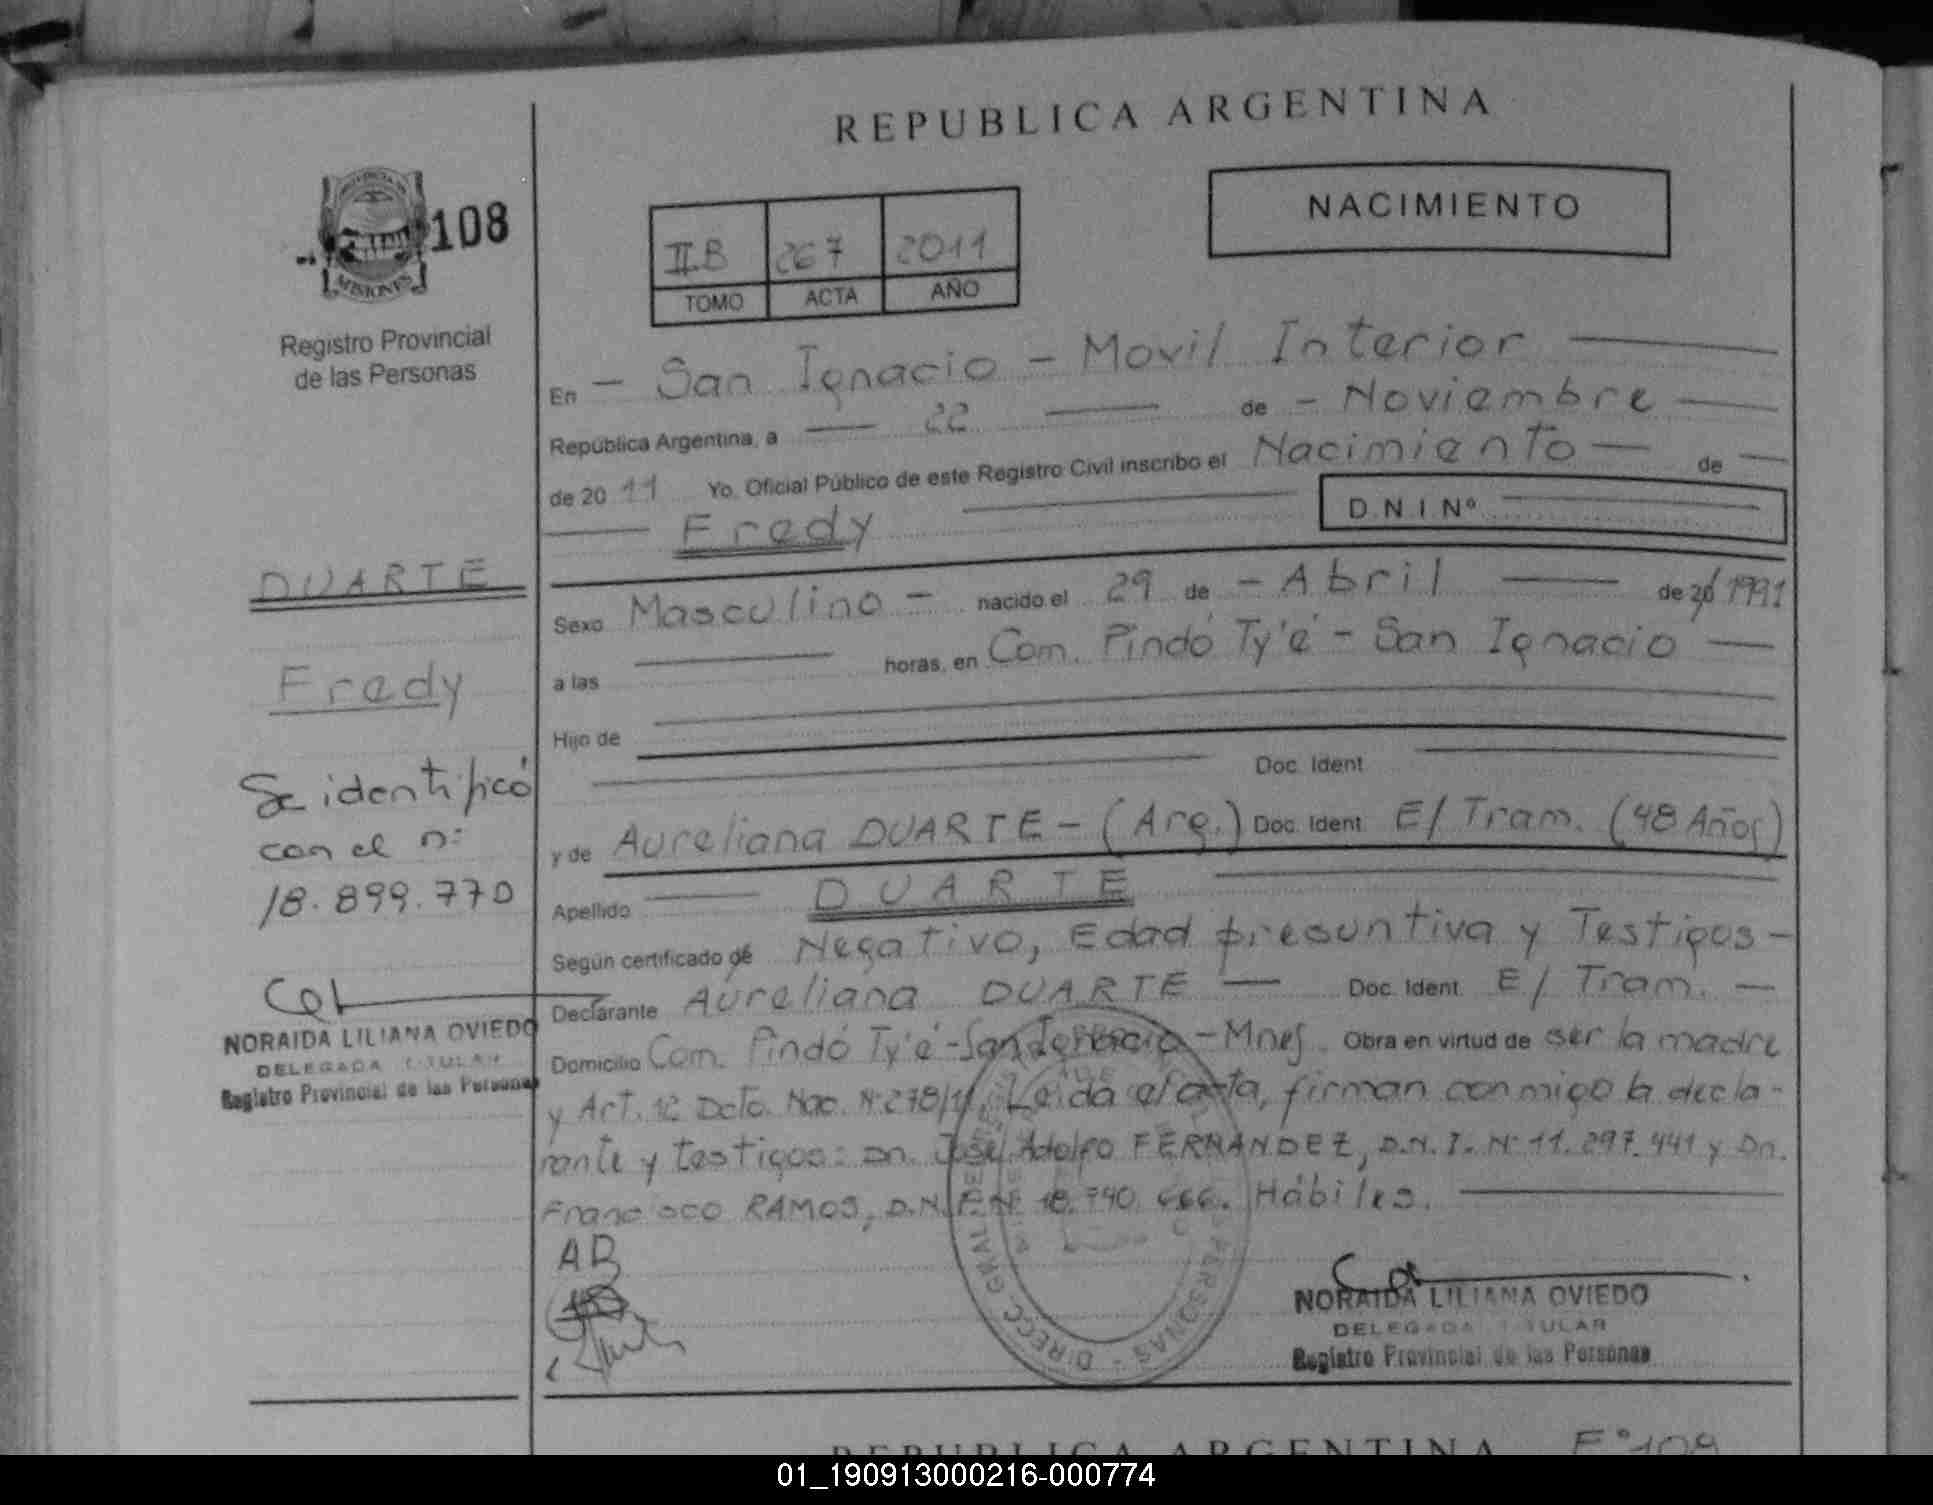 REPUBLICA ARGENTINA
NACIMIENTO
PROVINCIA DE
MISIONES
108
Registro Provincial
de las Personas
II.B 267 2011
TOMO ACTA AÑO
En — San Ignacio - Movil Interior —
República Argentina, a — 22 — de - Noviembre —
de 20 11 Yo. Oficial Público de este Registro Civil inscribo el Nacimiento — de —
— Fredy —
D.N.I.Nº —
DUARTE
Fredy
Se identificó
con el n:
18.899.770
NORAIDA LILIANA OVIEDO
DELEGADA TITULAR
Registro Provincial de las Personas
Sexo Masculino - nacido el 29 de - Abril — de 20 1991
a las — horas, en Com. Pindó Ty'é - San Ignacio —
Hijo de —
— Doc. Ident. —
y de Aureliana DUARTE - (Arg.) Doc. Ident. E/Tram. (48 Años)
Apellido — DUARTE —
Según certificado de Negativo, Edad presuntiva y Testigos -
Declarante Aureliana DUARTE — Doc. Ident. E/Tram. —
Domicilio Com. Pindó Ty'é - San Ignacio - Mnes. Obra en virtud de ser la madre
y Art. 12 Dcto. Nac. Nº 278/11. Leida el acta, firman conmigo la decla-
rante y testigos: Dn. José Adolfo FERNANDEZ, D.N.I. Nº 11.297.441 y Dn.
Francisco RAMOS, D.N.I. Nº 18.740.666. Hábiles. —
AD
DIRECC GRAL
PERSONAS
NORAIDA LILIANA OVIEDO
DELEGADA TITULAR
Registro Provincial de las Personas
REPUBLICA ARGENTINA Fº109
01_190913000216-000774